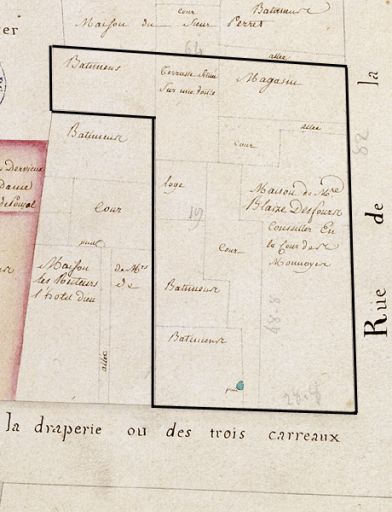 Cour
Batimens
Maison du Sieur Perret
64
allée
Batimens
Terrasse
Sur une voute
Magasin
la
allée
Batimens
Cour
loge
Maison de Mre
Blaize Desfours
Conseiller En
la Cour des
Monnoyes
Cour
19
Cour
puit
Maison de Mrs
les Recteurs de
l'hotel dieu
Batimens
Rue de
48.8
Batimens
allée
puit
la draperie ou des trois carreaux